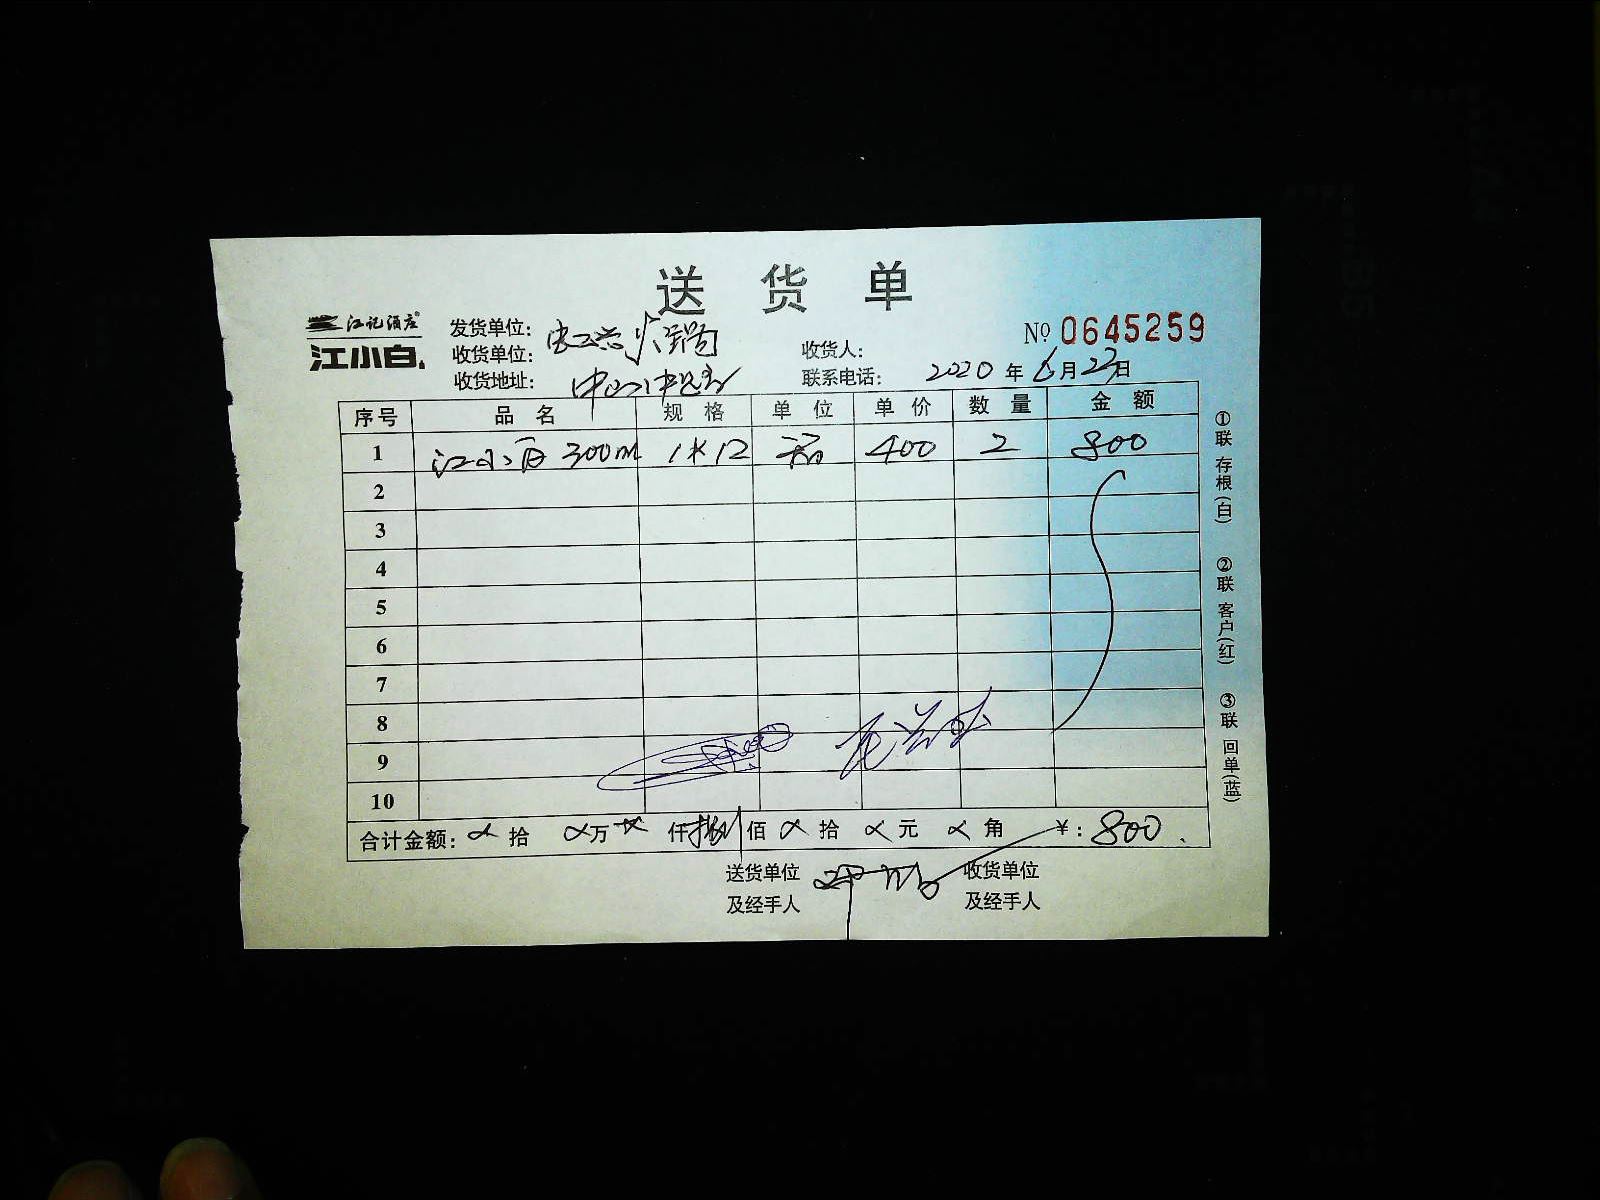 送货单
江记酒庄
江小白
发货单位:
№ 0645259
收货单位:
收货人:
收货地址:
联系电话: 2020 年 6月 日
序号 品名 规格 单位 单价 数量 金额
1 江小白 300ml 1*12 400 2 800
2
3
4
5
6
7
8
9
10
合计金额: 拾 万 仟 捌 佰 拾 元 角 ¥: 800.
送货单位及经手人
收货单位及经手人
①联 存根(白) ②联 客户(红) ③联 回单(蓝)